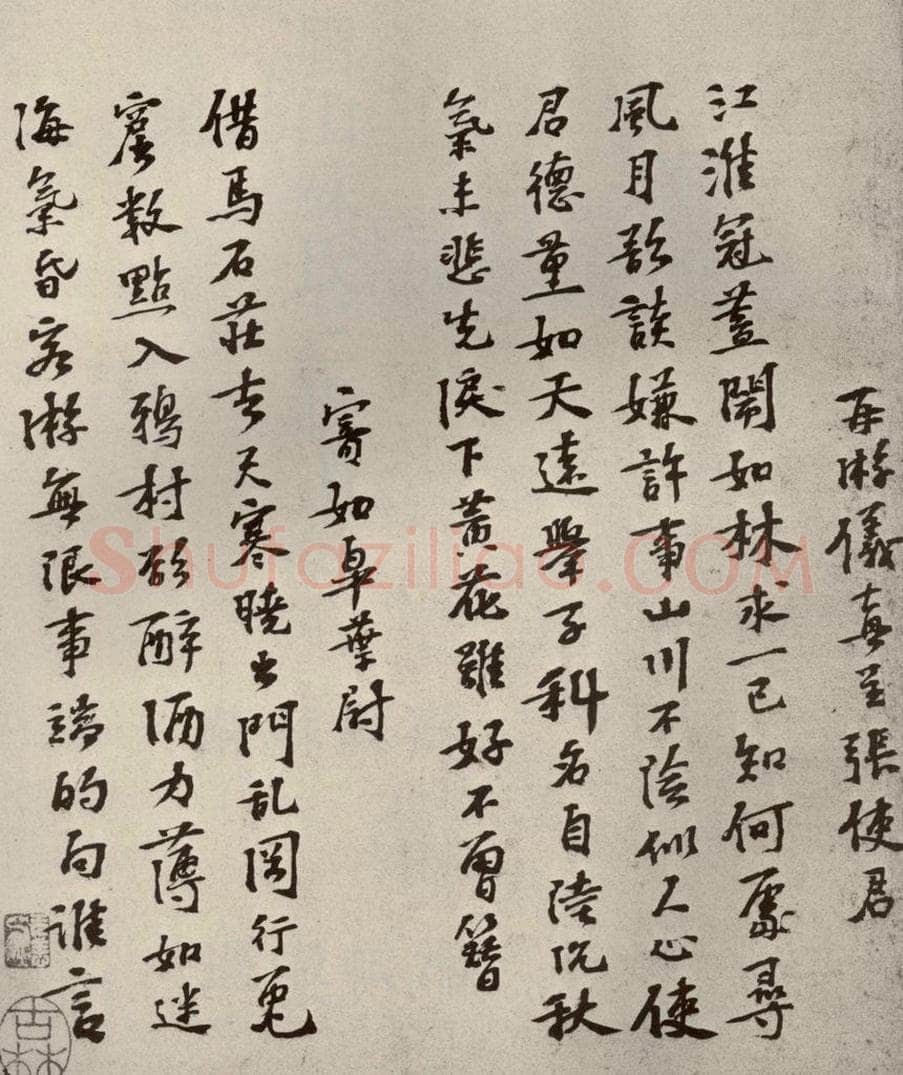 再游儀真呈張使君
江淮冠蓋鬧如林求一已知何處尋
風月欲談嫌許事山川不險似人心使
君德量如天遠舉子科名自陸沉秋
氣未悲先淚下黃花雖好不曾簪
寄如皋葉尉
借馬石莊去天寒曉出門乱岡行兔
窟數點入鴉村欲醉酒力薄如迷
海氣昏客游無限事端的向誰言
Shufaziliao.COM